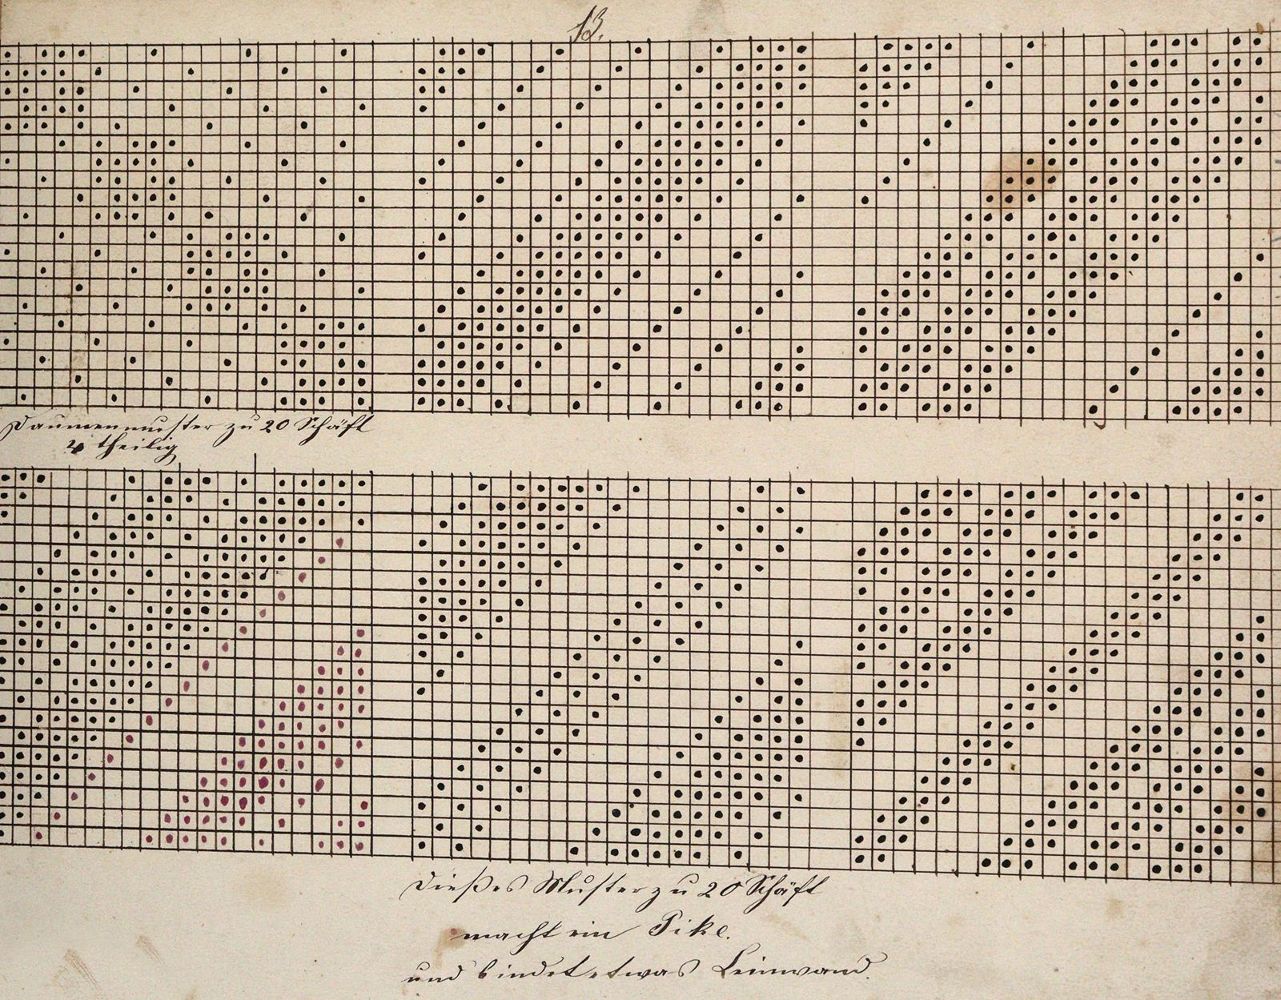 13.
Daumenmuster zu 20 Schäft
4 theilig
Dießes Muster zu 20 Schäft
macht ein Pike.
und bindet etwas Leinwand.